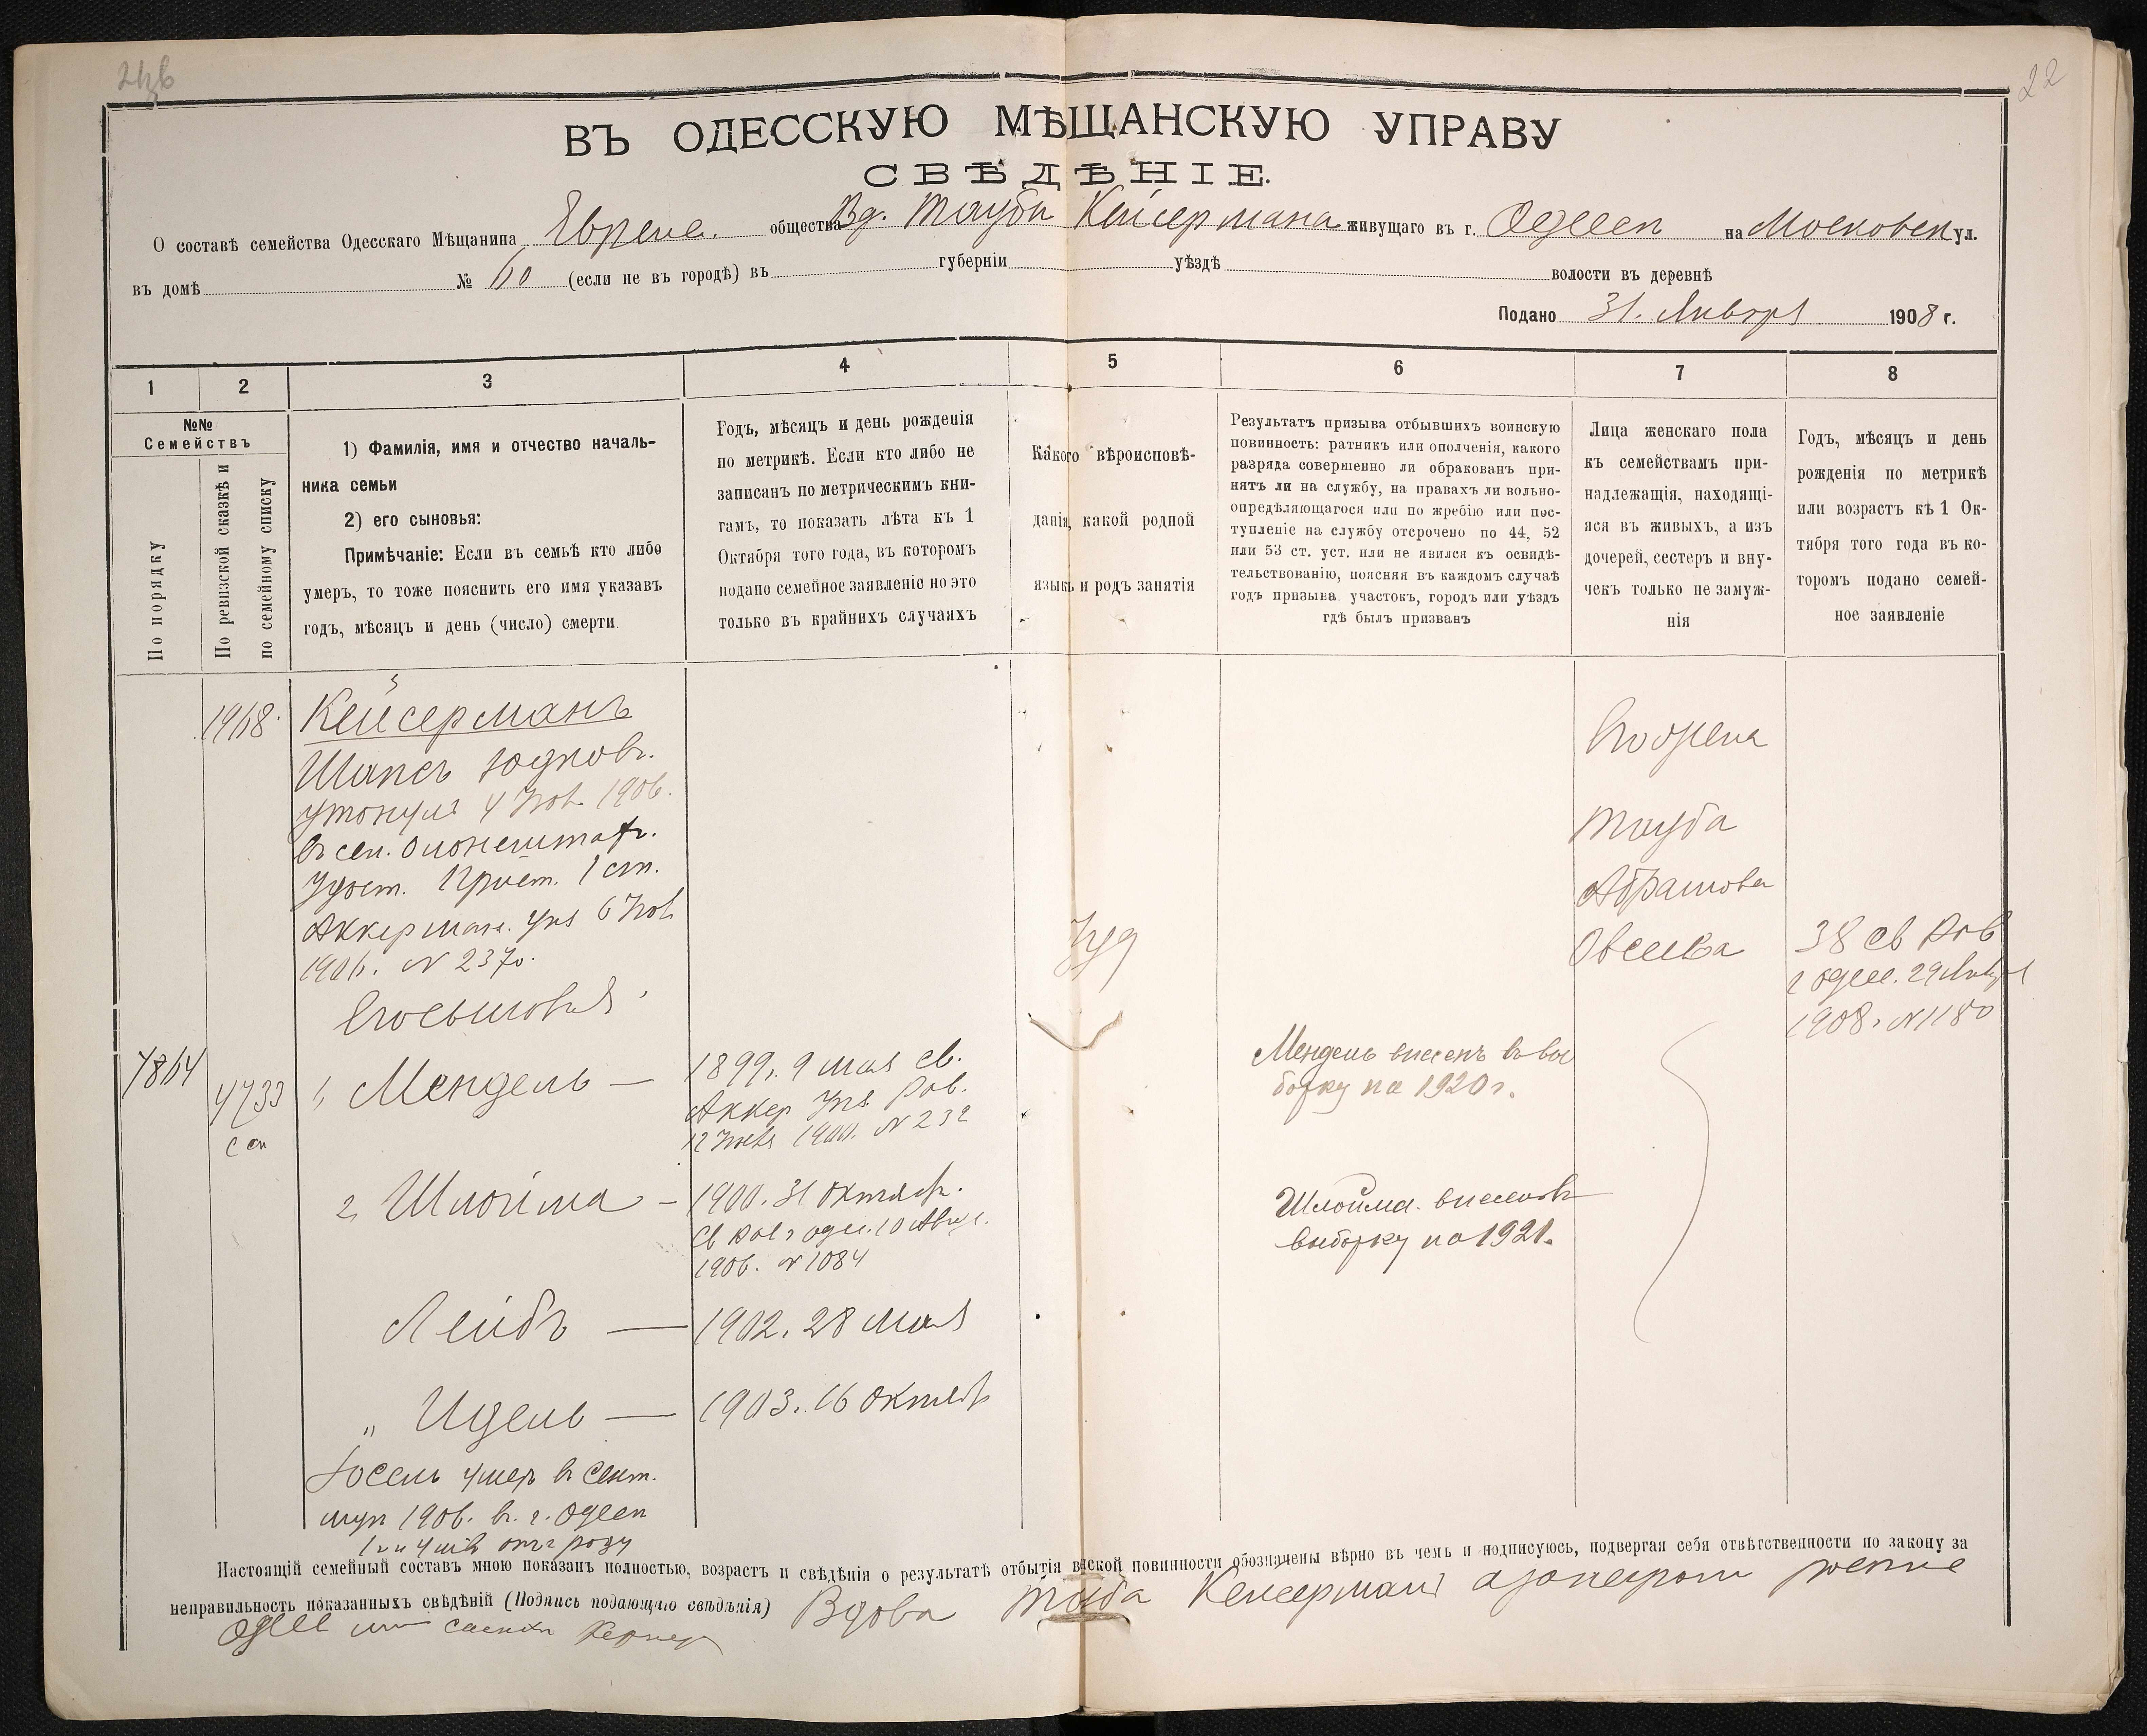 22
ВЪ ОДЕССКУЮ МѢЩАНСКУЮ УПРАВУ
СВѢДѢНІЕ.
О составѣ семейства Одесскаго Мѣщанина Еврейс. общества Вд. Таубы Кейсермана живущаго въ г. Одессѣ на Московск ул.
въ домѣ № 60 (если не въ городѣ) въ губерніи уѣздѣ волости въ деревнѣ
Подано 31. Января 1908 г.
1 2 3 4 5 6 7 8
№№
Семействъ
По порядку
По ревизской сказкѣ и
по семейному списку
1) Фамилія, имя и отчество началь-
ника семьи
2) его сыновья:
Примѣчаніе: Если въ семьѣ кто либо
умеръ, то тоже пояснить его имя указавъ
годъ, мѣсяцъ и день (число) смерти.
Годъ, мѣсяцъ и день рожденія
по метрикѣ. Если кто либо не
записанъ по метрическимъ кни-
гамъ, то показать лѣта къ 1
Октября того года, въ которомъ
подано семейное заявленіе но это
только въ крайнихъ случаяхъ
Какого вѣроисповѣ-
данія, какой родной
языкъ и родъ занятія
Результатъ призыва отбывшихъ воинскую
повинность: ратникъ или ополченія, какого
разряда совершенно ли обракованъ при-
нятъ ли на службу, на правахъ ли вольно-
опредѣляющагося или по жребію или пос-
тупленіе на службу отсрочено по 44, 52
или 53 ст. уст. или не явился къ освидѣ-
тельствованію, поясняя въ каждомъ случаѣ
годъ призыва участокъ, городъ или уѣздъ
гдѣ былъ призванъ
Лица женскаго пола
къ семействамъ при-
надлежащія, находящі-
яся въ живыхъ, а изъ
дочерей, сестеръ и вну-
чекъ только не замуж-
нія
Годъ, мѣсяцъ и день
рожденія по метрикѣ
или возрастъ къ 1 Ок-
тября того года въ ко-
торомъ подано семей-
ное заявленіе
1968.
Кейсерманъ
Шапсъ Юдковъ.
утонулъ 4 Ноя. 1906.
въ сел. Олонештахъ.
Удост. Прист. 1 ст.
Аккерман. уѣз 6 Ноя
1906. № 2370.
Его сыновья
7864
4733
1, Мендель —
1899. 9 мая св.
Аккер уѣз. Рав.
1900. № 232
2, Шлойма —
1900. 31 Октябр.
св Рав г Одес. 10 Авгус.
1906. № 1084
Лейбъ —
1902. 28 Мая
„ Идель —
1903. 16 Октяб
Іосель умер в Сент.
1906. в. г. Одессѣ
отъ роду
Іуд
Мендель внесенъ въ вы
борку на 1920 г.
Шлойма. внесенъ
выборку на 1921.
Его жена
Тауба
Абрамова
Овсеева
38 св Рав
г Одесс. 29 Января
1908. № 1180
Настоящій семейный составъ мною показанъ полностью, возрастъ и свѣдѣнія о результатѣ отбытія вᴏской повинности обозначены вѣрно въ чемъ и подписуюсь, подвергая себя отвѣтственности по закону за
неправильность показанныхъ свѣдѣній (Подпись подающаго свѣдѣнія) Вдова Тауба Кейсерманъ